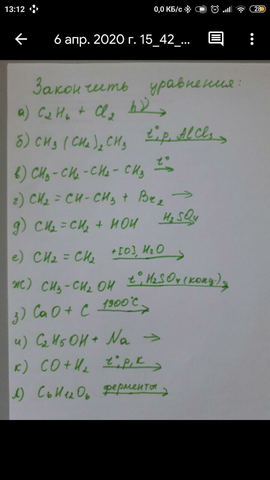 13:12
0,0 КБ/с
28
6 апр. 2020 г. 15_42_
Закончить уравнения:
а) C₂H₆ + Cl₂ hν→
б) CH₃(CH₂)₂CH₃ t°,p,AlCl₃→
в) CH₃-CH₂-CH₂-CH₃ t°→
г) CH₂=CH-CH₃ + Br₂ →
д) CH₂=CH₂ + HOH H₂SO₄→
е) CH₂=CH₂ +[O],H₂O→
ж) CH₃-CH₂OH t°,H₂SO₄(конц)→
з) CaO + C 1900°C→
и) C₂H₅OH + Na →
к) CO + H₂ t°,p,к→
л) C₆H₁₂O₆ ферменты→